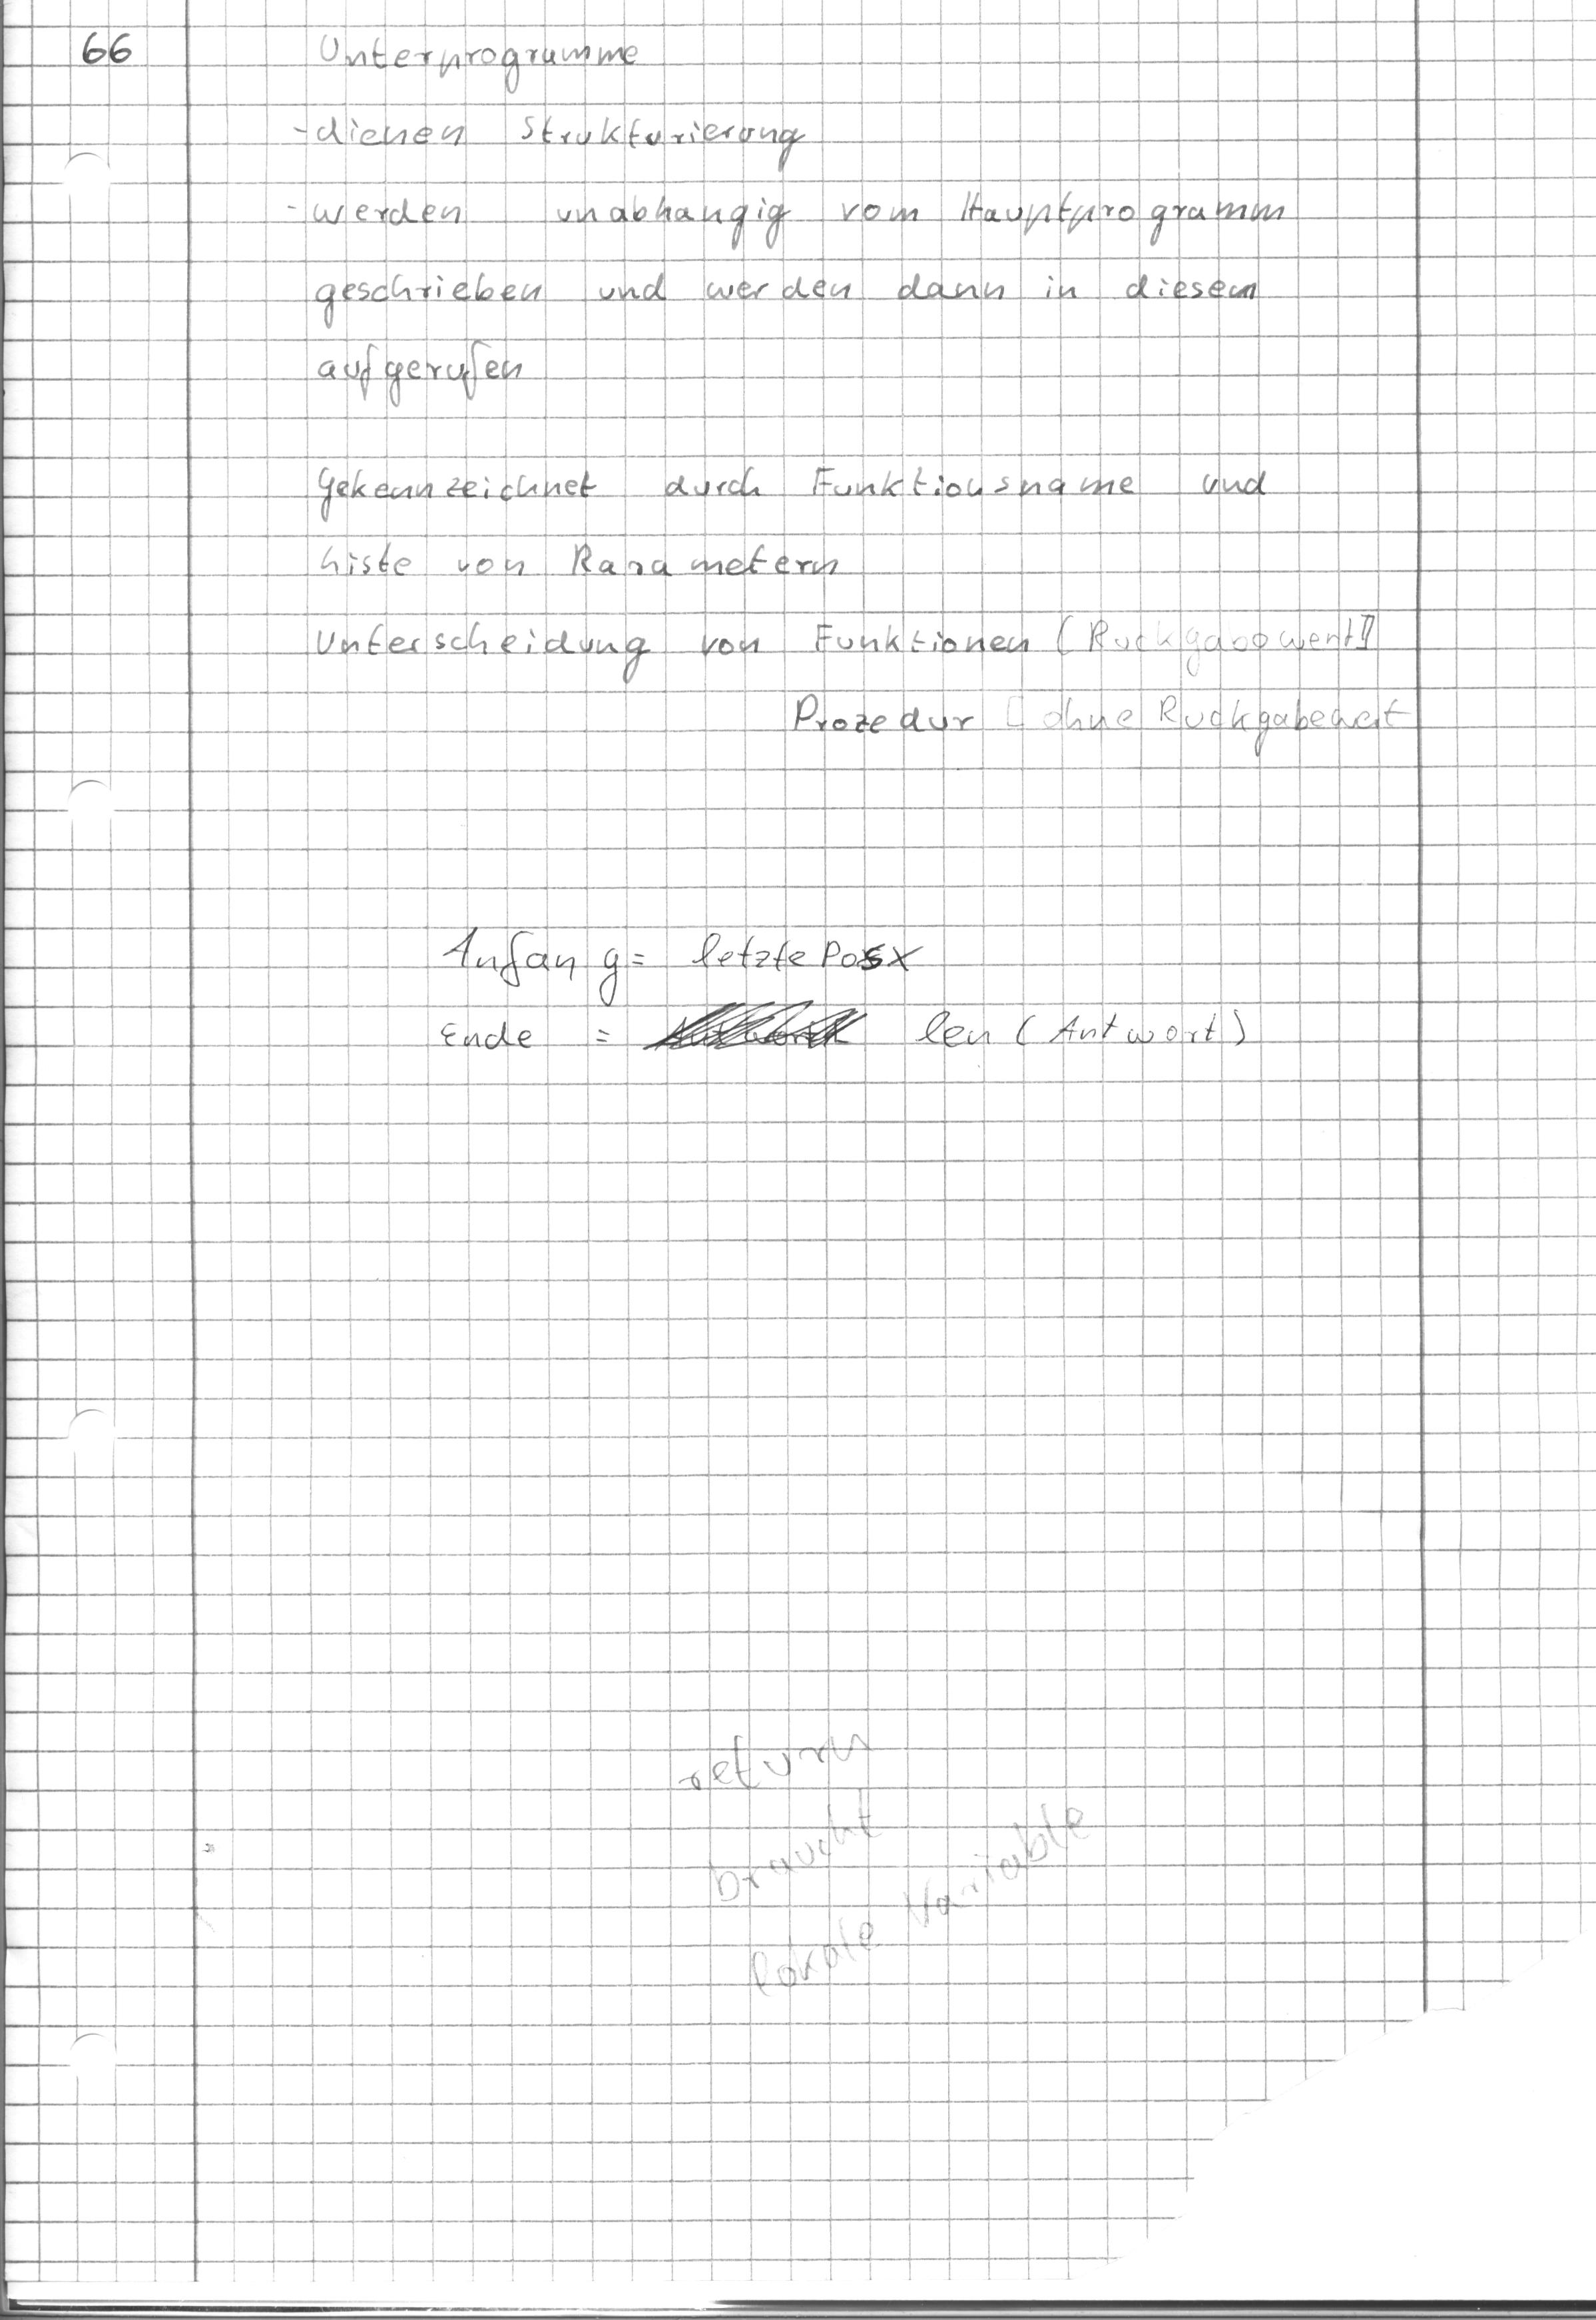 66 Unterprogramme
- dienen Strukturierung
- werden unabhangig vom Hauptprogramm
geschrieben und werden dann in diesem
aufgerufen
Gekennzeichnet durch Funktionsname und
Liste von Parametern
Unterscheidung von Funktionen [Ruckgabewert]
Prozedur [ohne Ruckgabewert
Anfang = letzte PosX
Ende = len (Antwort)
return
braucht
lokale Variable